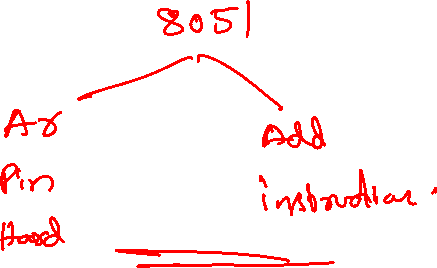 8051
Ar
Pin
Hard
Add
instruction.